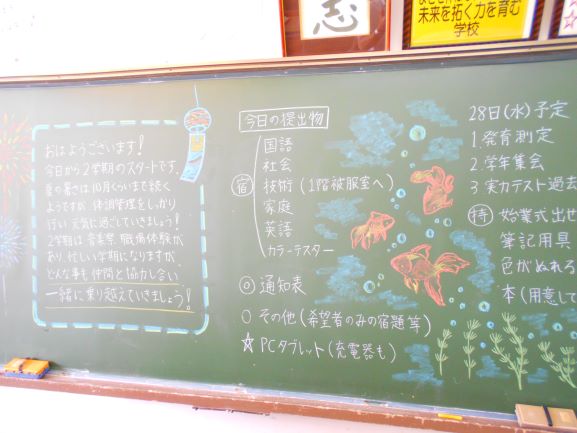 志
未来を拓く力を育む
学校
おはようございます!
今日から2学期のスタートです。
夏の暑さは10月くらいまで続く
ようですが、体調管理をしっかり
行い元気に過ごしていきましょう!
2学期は音楽祭、職場体験が
あり、忙しい学期になりますが、
どんな事も仲間と協力し合い
一緒に乗り越えていきましょう!
今日の提出物
宿
国語
社会
技術(1階被服室へ)
家庭
英語
カラーテスター
◎通知表
○その他(希望者のみの宿題等)
☆PCタブレット(充電器も)
28日(水)予定
1.発育測定
2.学年集会
3.実力テスト過去
特 始業式出せ
筆記用具
色がぬれる
本(用意して